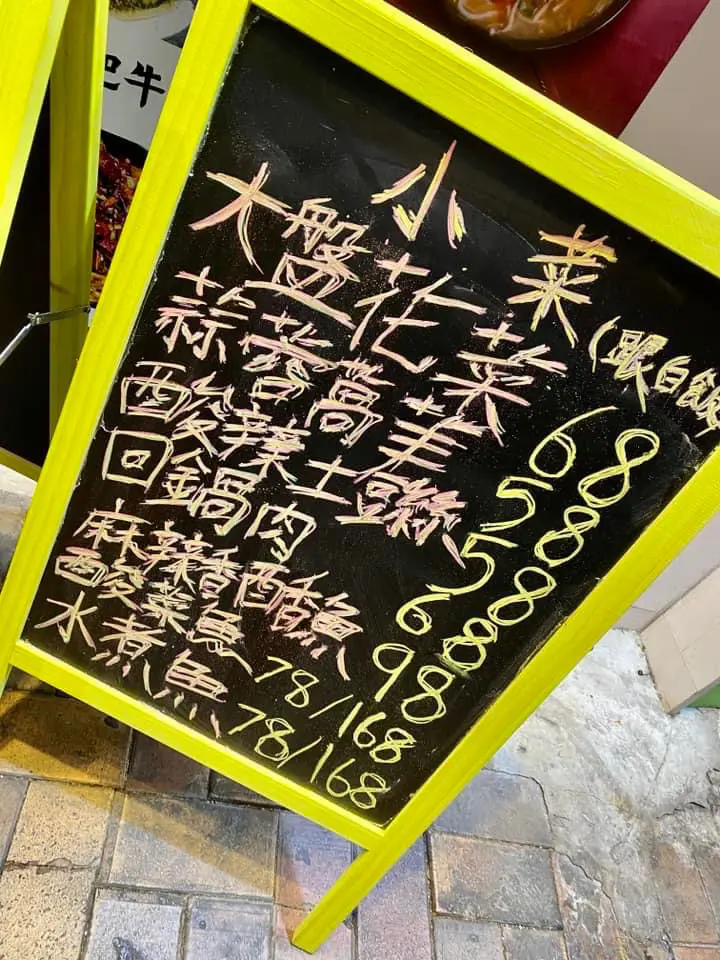 牛
小菜(跟白飯)
大盤花菜 68
蒜蓉蒿 58
酸辣土豆絲 58
回鍋肉 68
麻辣香 魚 98
酸菜魚 78/168
水煮魚 78/168